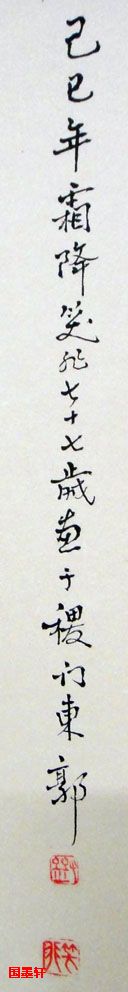 己巳年霜降笑非七十七歲画于稷门東郭
国墨轩